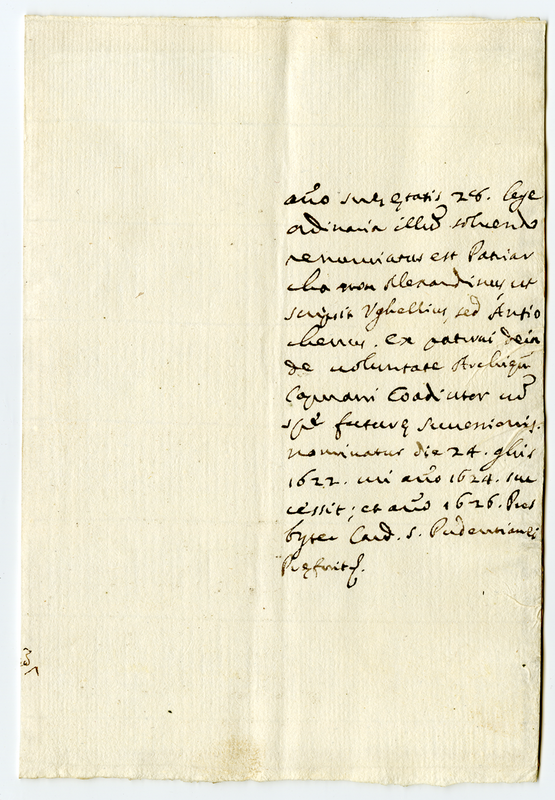 año suę ętatis 28. lege
ordinaria illũ solvendo
renunciatus est Patriar
cha non Alexandinus ut
scripsit Vghellius, sed Antio
chenus. ex patrui dein
de voluntate Archiepi
Capuani Coadiutor cũ
spe futurę successionis.
nominatus die 24. 9bris
1622. cui año 1624. suc
cessit; et año 1626. Pres
byter Card. S. Pudentianę